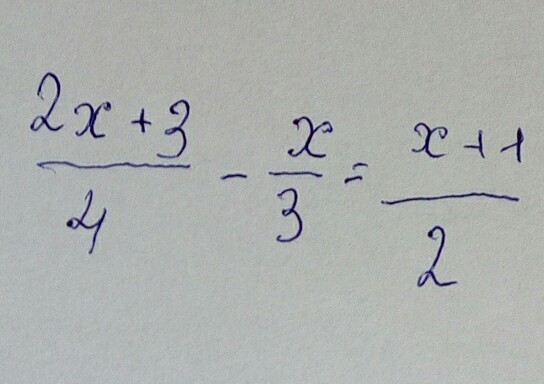 \frac{2x+3}{4} - \frac{x}{3} = \frac{x+1}{2}